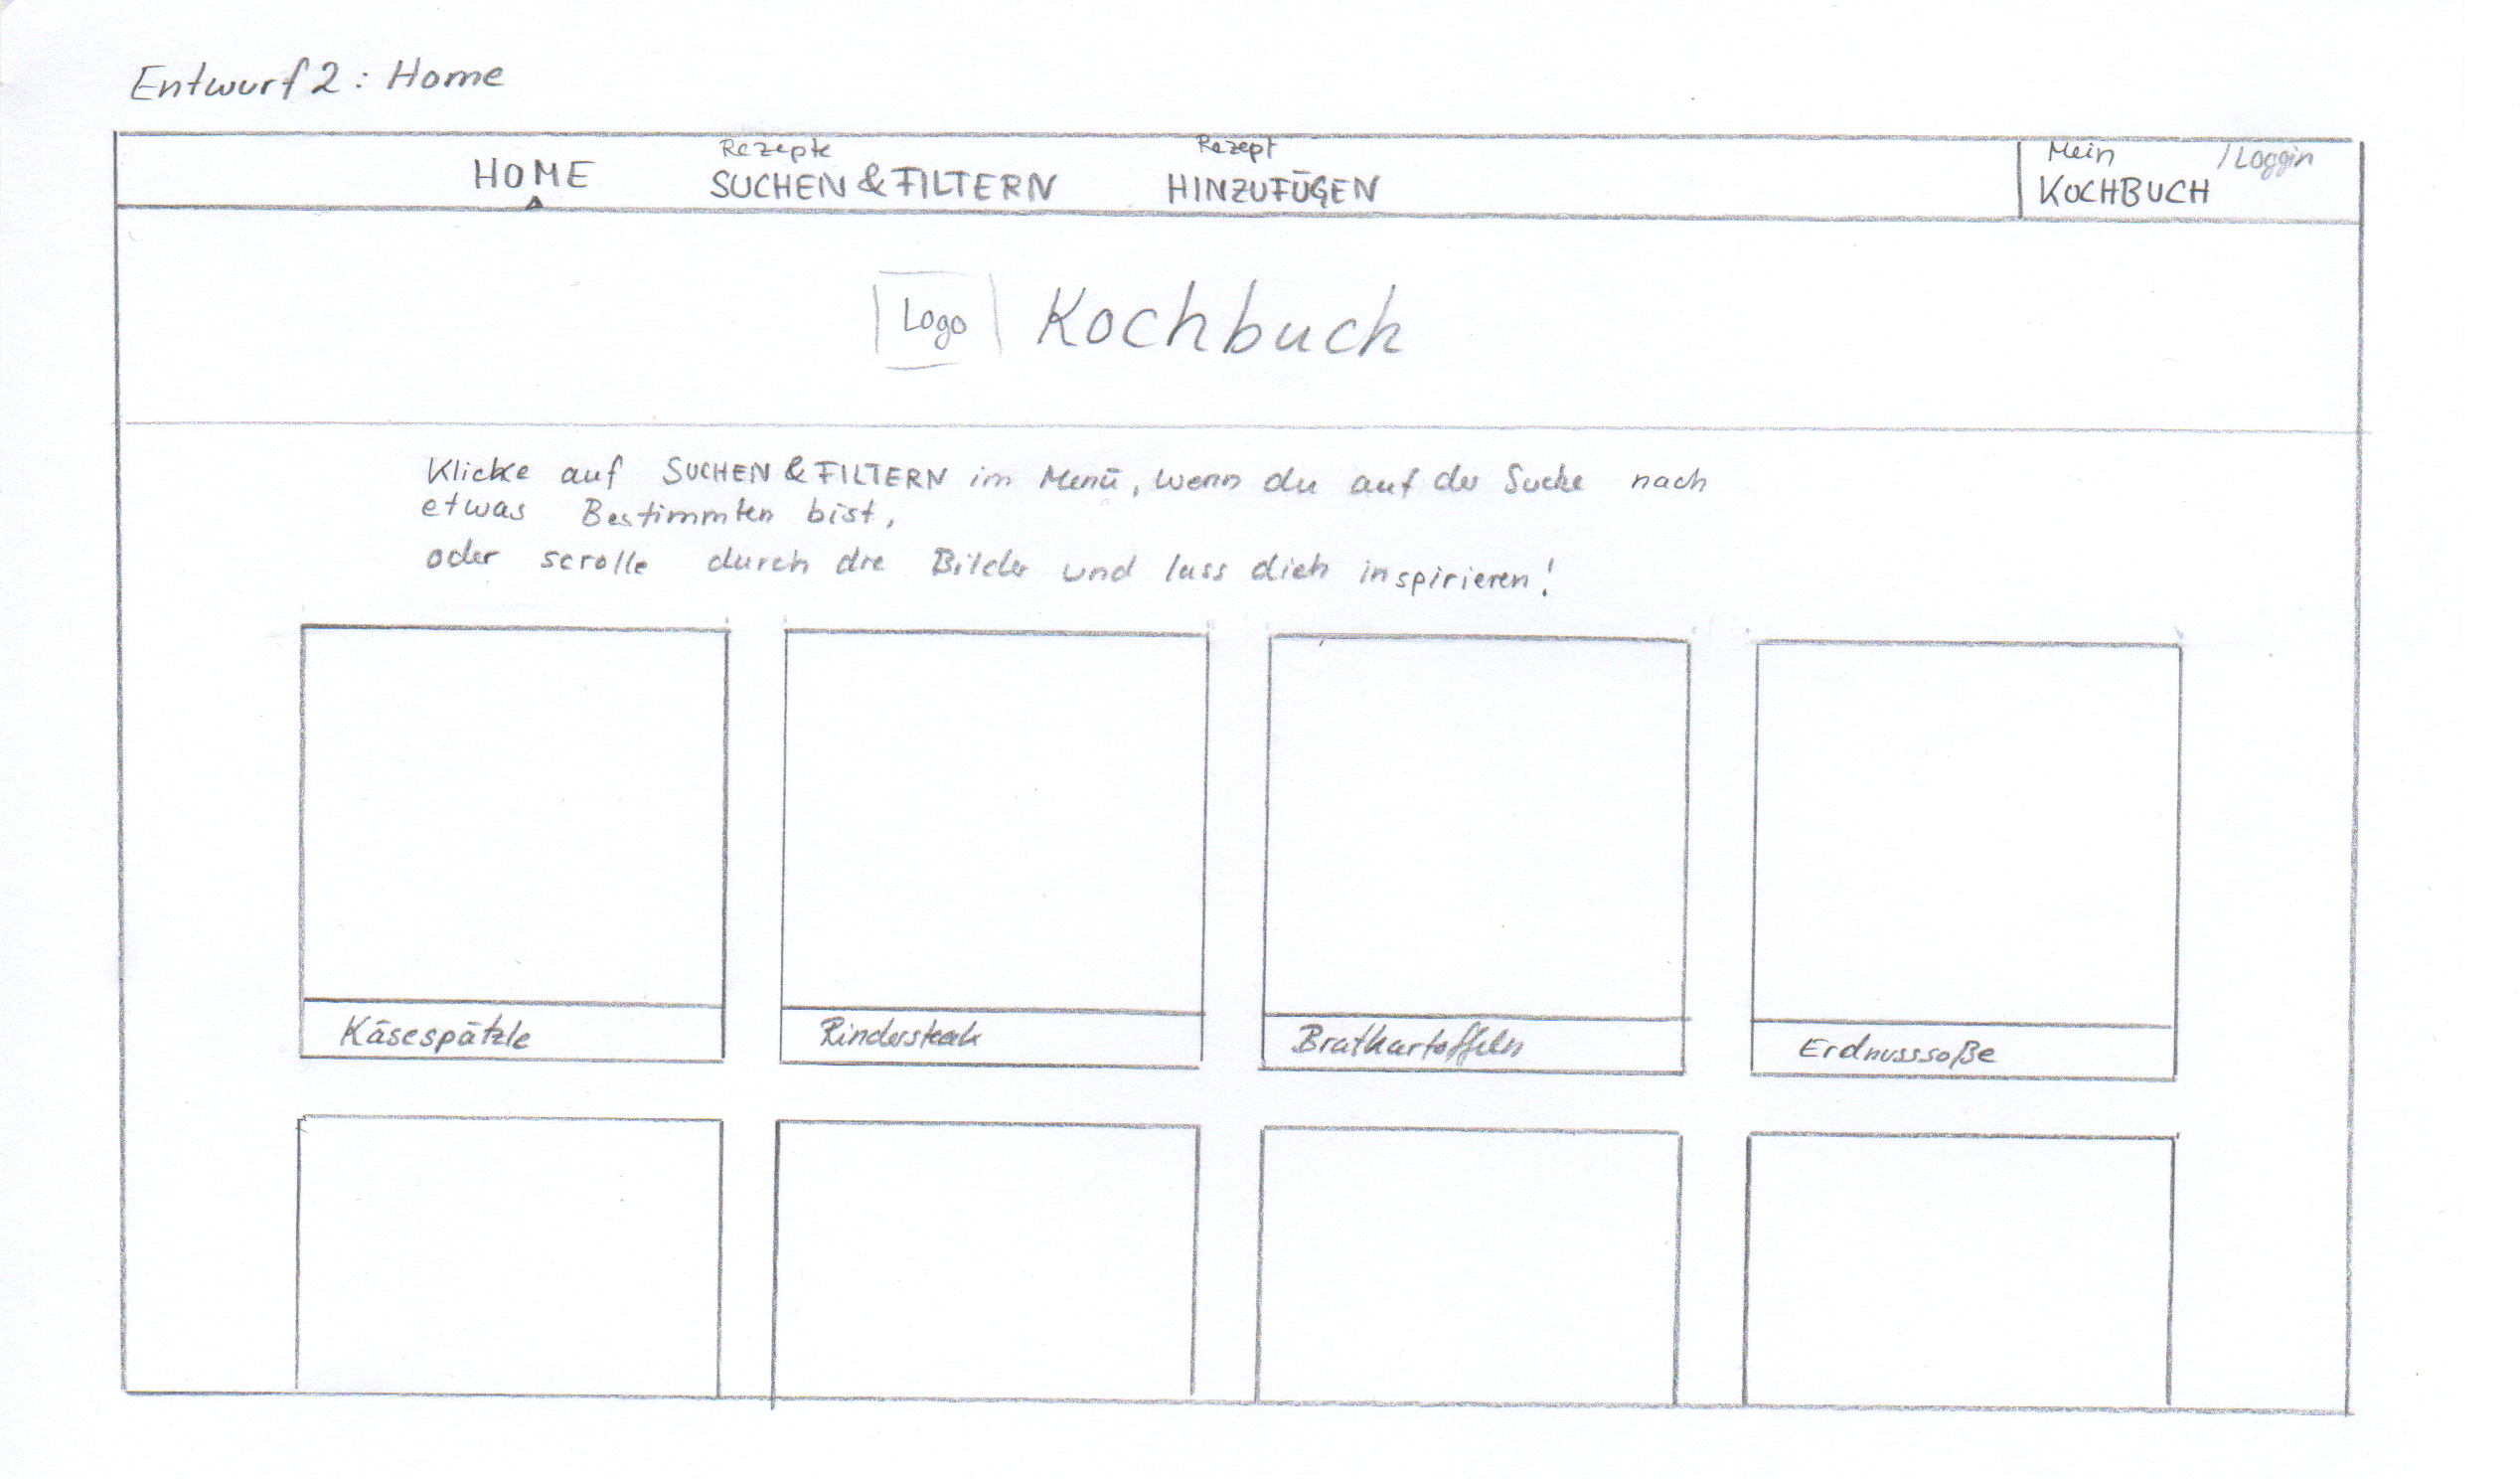 Entwurf 2: Home
HOME
Rezepte
SUCHEN & FILTERN
Rezept
HINZUFÜGEN
Mein / Loggin
KOCHBUCH
Logo Kochbuch
Klicke auf SUCHEN & FILTERN im Menü, wenn du auf der Suche nach
etwas Bestimmten bist,
oder scrolle durch die Bilder und lass dich inspirieren!
Käsespätzle
Rindersteak
Bratkartoffeln
Erdnusssoße